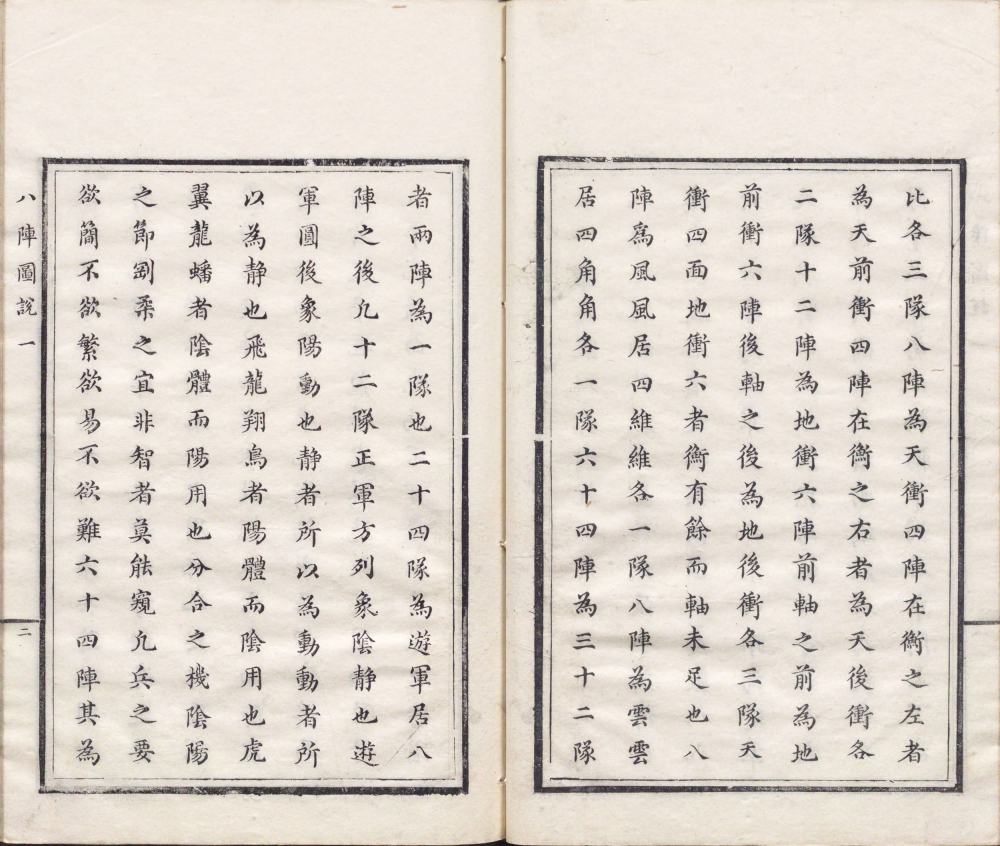 比各三隊八陣為天衝四陣在衡之左者
為天前衝四陣在衡之右者為天後衝各
二隊十二陣為地衝六陣前軸之前為地
前衝六陣後軸之後為地後衝各三隊天
衝四面地衝六者衡有餘而軸未足也八
陣為風風居四維維各一隊八陣為雲雲
居四角角各一隊六十四陣為三十二隊
者兩陣為一隊也二十四隊為遊軍居八
陣之後凢十二隊正軍方列象陰静也遊
軍圓後象陽動也静者所以為動動者所
以為静也飛龍翔鳥者陽體而陰用也虎
翼龍蟠者陰體而陽用也分合之機陰陽
之節剛柔之宜非智者莫能窺凢兵之要
欲簡不欲繁欲易不欲難六十四陣其為
八陣圖説一
二